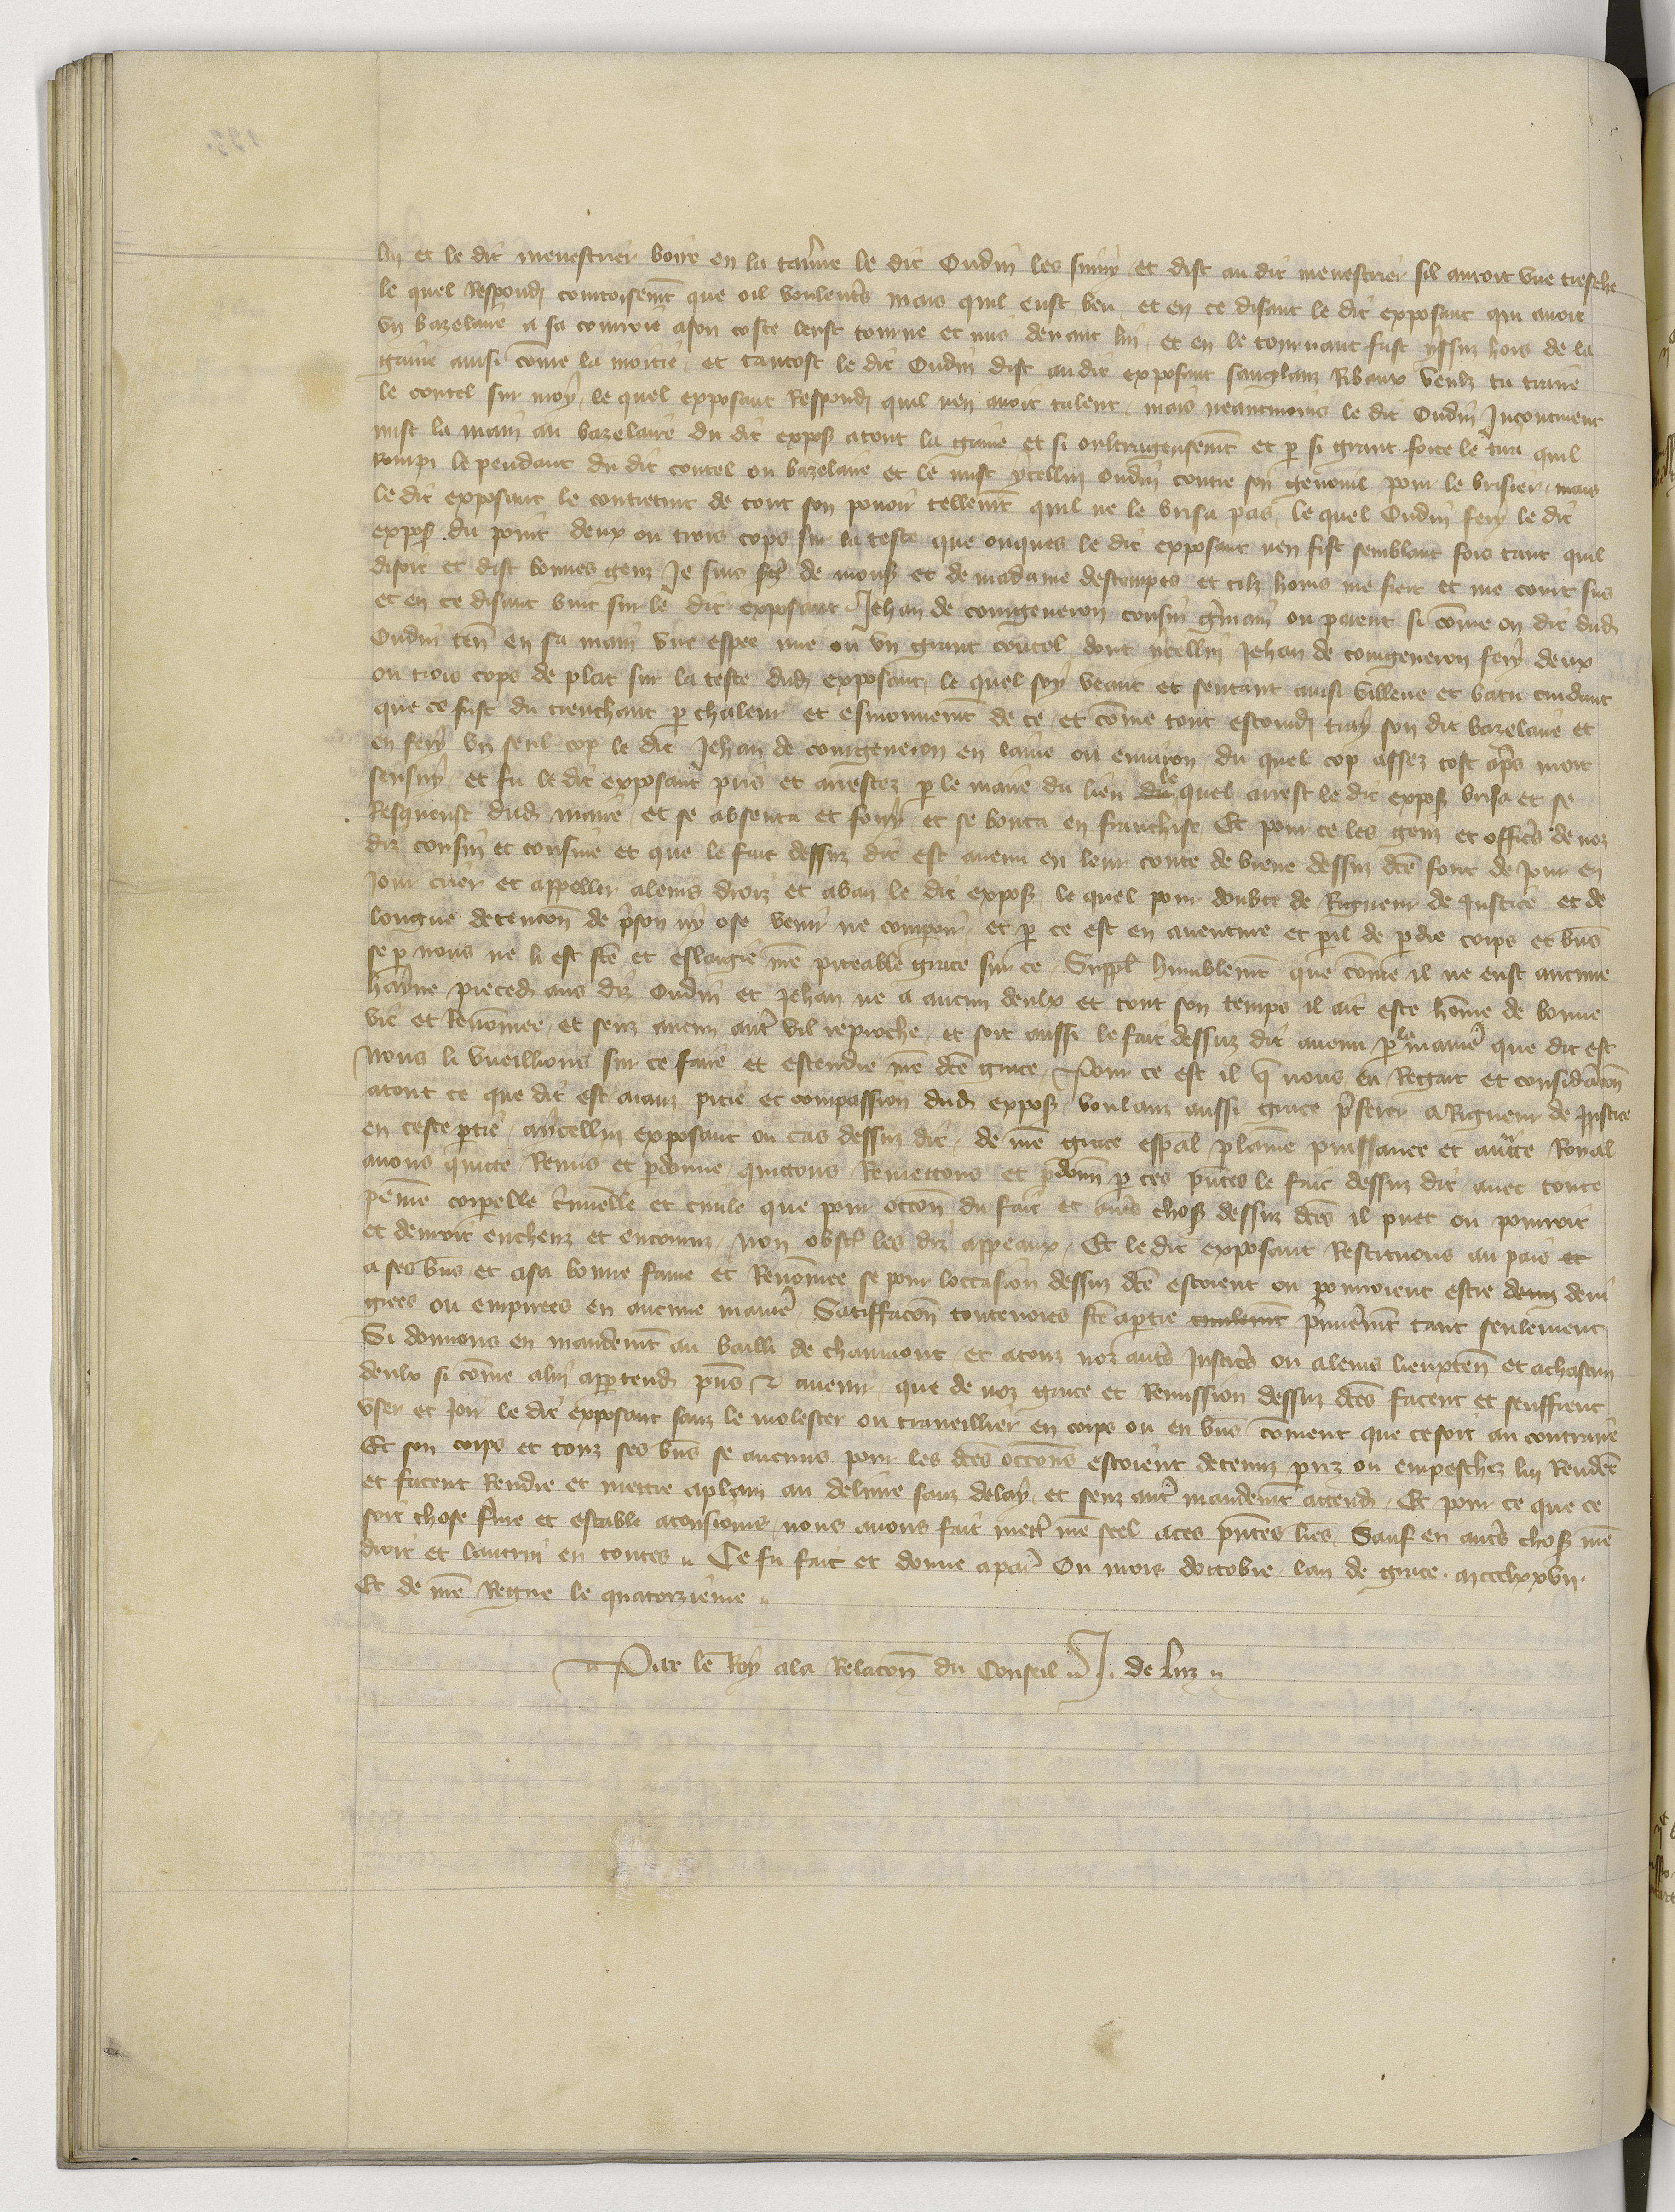 lui et le dit menestrier boire en la tav̾ne le dit Oudin les suiuy et dist au dit menestrier sil auroit vne tresche
le quel Respond coutoisem̄t que oil voulent̾s mais quil eust beu et en ce disant le dit exposant qui auoit
vn bazelaire a sa courroie a son coste leust tourne et mis deuant lui et en le tournant fust yssuz hors de la
gaine ainsi cōme la moitie et tantost le dit Oudin dist au dit exposant sanglanz Ribaux veulz tu traire
le coutel sur moy le quel exposant Respond quil nen auoit talent mais neantmoins le dit Oudin Incontinent
mist la main au bazelaire du dit expos̾ atout la gaine et si oultrageusem̄t et p si grant force le tira quil
Rompi le pendant du dit coutel ou bazelaire et le mist ycellui Oudin contre son genouil pour le brisier mais
le dit exposant le contretint de tout son pouoir tellem̄t quil ne le brisa pas le quel Oudin fery le dit
expos̾ du point deux ou trois cops sur la teste que onques le dit exposant nen fist semblant fors tant quil
disoit et dist bonnes genz Je suis de mons̾ et de madame destampes et cilz homs me fiert et me court sus
et en ce disant vint sur le dit exposant Jehan de congeneron cousin g̾main ou parent si cōme on dit dud
Oudin ten̄ en sa main vne espee nue ou vn grant coutel dont ycellui Jehan de congeneron fery deux
ou trois cops de plat sur la teste dud exposant le quel soy veant et sentant ainsi villene et batu cuidant
que ce fust du trenchant p chaleur et esmouuem̄t de ce et cōme tout estourd tray son dit bazelaire et
en fery vn seul cop le dit Jehan de congeneron en laine ou enuiron du quel cop assez tost ap̾s mort
sensuy et fu le dit exposant pris et arrestez p le maire du lieu du le quel arrest le dit expos̾ brisa et se
Resqueust dud maire et se absenta et fouy et se bouta en franchise Et pour ce les genz et offic̾s de noz
diz cousin et cousine et que le fait dessuz dit est auenu en leur conte de briene dessuz dc̄e font de Jour en
Jour crier et appeller a leurs droiz et a ban le dit expos̾ le quel pour doubte de Rigueur de Justice et de
longue detencōn de p̾son ny ose venir ne comparoir et p ce est en auenture et p̾il de p̾dre corps et biēs
se p nous ne li est fc̄e et eslargie nr̄e piteable grace sur ce Suppl̾ humblem̄t que cōme il ne eust aucune
hayne preced aus diz Oudin et Jehan ne a aucun deulx et tout son temps il ait este hōme de bonne
vie et Renōmee et senz aucun aut̾ vil reproche et soit aussi le fait dessuz dit auenu p la manie̾ que dit est
Nous li vueillions sur ce faire et estendre nr̄e dc̄e grace Pour ce est il q̄ nous eu Regart et considãcōn
atout ce que dit est aianz pitie et compassion dud expos̾ voulanz aussi grace p̾ferer a Rigueur de Justice
en ceste p̾tie aycellui exposant ou cas dessuz dit de nr̄e grace esp̄al plaine puissance et auc̄te Royal
auons quitte Remis et p̾donne quittons Remettons et p̾donn̄ p ces p̄ntes le fait dessuz dit auec toute
peine corporelle c̾minelle et ciuile que pour occōn du fait et aut̾s chos̾ dessuz dc̄es il puet ou pourroit
et deuroit encheuz et encouruz Non obst̾ les diz appeaux Et le dit exposant Restituons au pais et
a ses biēs et a sa bonne fame et Renōmee se pour loccasion dessuz dc̄e estoient ou pourroient estre deni
grees ou empirees en aucune manie̾ Satiffacōn touteuoies fc̄e a partie ciuilem̄t p̾mierem̄t tant seulement
Si donnons en mandem̄t au bailli de chaumont et atouz noz aut̾s Justic̾s ou a leurs lieuxten̄ et achascun
deulx si cōme alui app̾tend p̄ns ⁊ auenir que de noz grace et Remission dessuz dc̄es facent et seuffrent
vser et Joir le dit exposant sanz le molester ou traueillier en corps ou en biēs cōment que ce soit au contraire
Et son corps et touz ses biēs se aucuns pour les dc̄es occōns estoient detenuz priz ou empeschez lui Rendēt
et facent Rendre et mettre aplain au deliure sanz delay et senz aut̾ mandem̄t attend Et pour ce que ce
soit chose f̾me et estable atousiours nous auons fait mett̾ nr̄e seel a ces p̄ntes lr̄es Sauf en aut̾s chos̾ nr̄e
droit et lautrui en toutes Ce fu fait et donne apar̾ Ou mois doctobre lan de grace mccclxxvii
Et de nr̄e Regne le quatorzieme
Par le Roy ala Relacōn du Conseil J. de luz